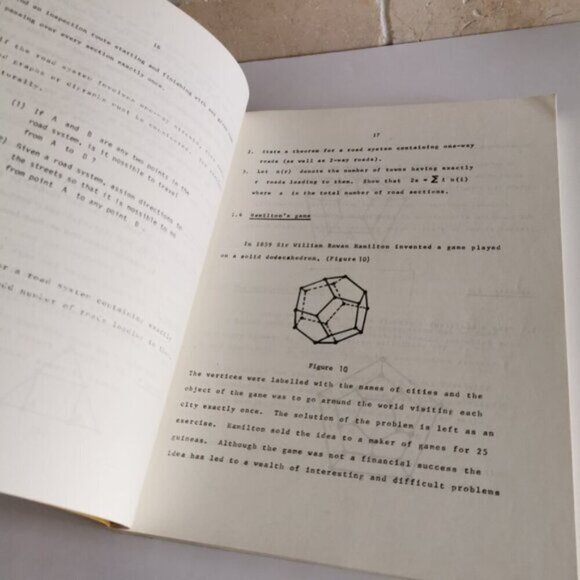 16
an inspection route starting and finishing with
passing over every section exactly once.
If the road system involves one-way streets
graphs or digraphs must be
naturally.
(1) If A and B are any two points in the
road system, is it possible to travel
from A to B ?
Given a road system, assign directions to
the streets so that it is possible to be
from point A to any point B.
or a road system containing exactly
number of roads leading to
17
2. State a theorem for a road system containing one-way
roads (as well as 2-way roads).
3. Let n(r) denote the number of towns having exactly
r roads leading to them. Show that 2s = Σ i n(i)
where s is the total number of road sections.
1.4 Hamilton's game
In 1859 Sir William Rowan Hamilton invented a game played
on a solid dodecahedron. (Figure 10)
Figure 10
The vertices were labelled with the names of cities and the
object of the game was to go around the world visiting each
city exactly once. The solution of the problem is left as an
exercise. Hamilton sold the idea to a maker of games for 25
guineas. Although the game was not a financial success the
idea has led to a wealth of interesting and difficult problems